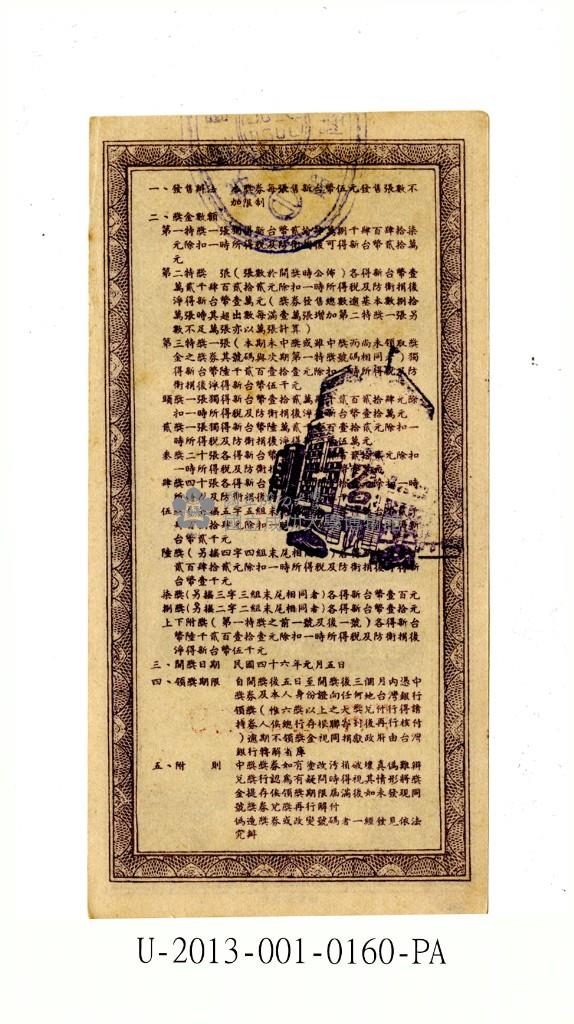 一、發售辦法 本獎券每張售新台幣伍元發售張數不
加限制
二、獎金數額
第一特獎一張獨得新台幣貳拾 萬捌千肆百肆拾柒
元除扣一時所得稅及防衛捐後可得新台幣貳拾萬
元
第二特獎 張(張數於開獎時公佈)各得新台幣壹
萬貳千肆百貳拾貳元除扣一時所得稅及防衛捐後
淨得新台幣壹萬元(獎券發售總數逾基本數捌拾
萬張時其超出數每滿壹萬張增加第二特獎一張另
數不足萬張亦以萬張計算)
第三特獎一張(本期未中獎或雖中獎而尚未領取獎
金之獎券其號碼與次期第一特獎號碼相同 )獨
得新台幣陸千貳百壹拾壹元除扣一時所得稅及防
衛捐後淨得新台幣伍千元
頭獎一張獨得新台幣壹拾貳萬 千貳百貳拾肆元除
扣一時所得稅及防衛捐後淨 新台幣壹拾萬元
貳獎一張獨得新台幣陸萬貳千 百壹拾貳元除扣一
時所得稅及防衛捐後淨得 伍萬元
叁獎二十張各得新台幣 貳拾貳元除扣
一時所得稅及防衛
肆獎四十張各得新台幣 元除扣一時
所 稅及防衛捐後
伍 五字五組末
台幣貳千元
陸獎(另搖四字四組末尾相
貳百肆拾貳元除扣一時所得稅及防衛捐後淨得新
台幣壹千元
柒獎(另搖三字三組末尾相同者)各得新台幣壹百元
捌獎(另搖二字二組末尾相同者)各得新台幣壹拾元
上下附獎(第一特獎之前一號及後一號)各得新台
幣陸千貳百壹拾壹元除扣一時所得稅及防衛捐後
淨得新台幣伍千元
三、開獎日期 民國四十六年元月五日
四、領獎期限 自開獎後五日至開獎後三個月內憑中
獎券及本人身份證向任何地台灣銀行
領獎(惟六獎以上之大獎兌付行得請
持券人俟總行存根聯寄到後再行核付
)逾期不領獎金視同捐獻政府由台灣
銀行轉解省庫
五、附 則 中獎獎券如有塗改污損破壞真偽難辨
兌獎行認為有疑問時得視其情形將獎
金提存俟領獎期限屆滿後如未發現同
號獎券兌獎再行解付
偽造獎券或改變號碼者一經發見依法
究辦
U-2013-001-0160-PA